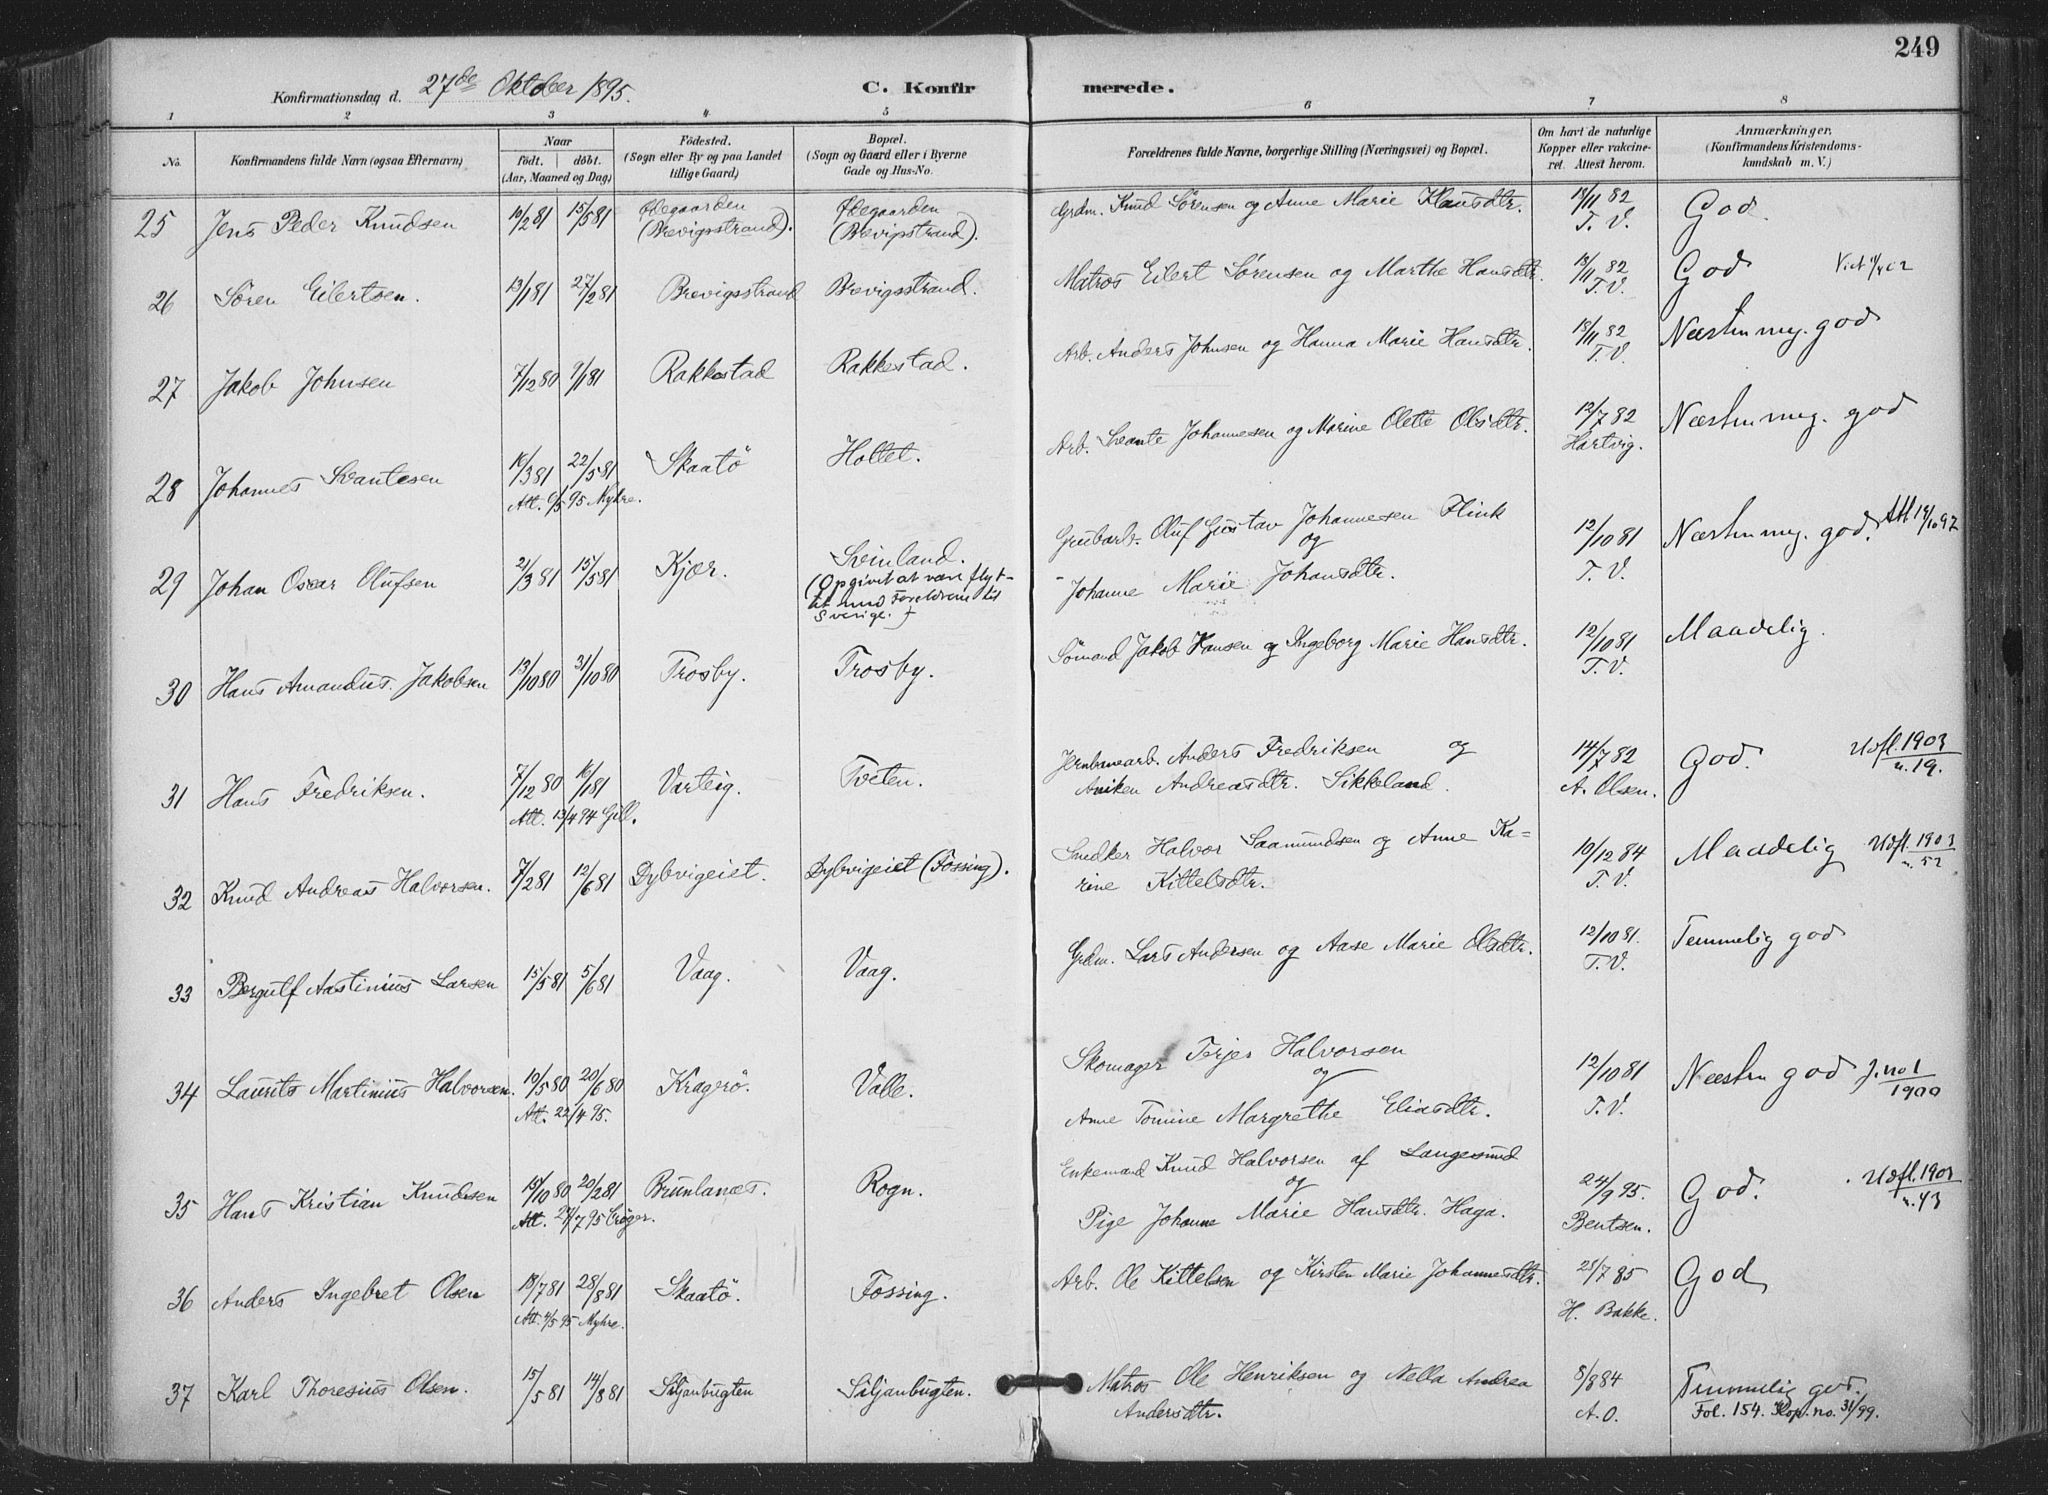 249
Konfirmationsdag d. 27de Oktober 1895.
C. Konfirmerede.
1 2 3 4 5 6 7 8
No.
Konfirmandens fulde Navn (ogsaa Efternavn)
Naar
født. døbt.
(Aar, Maaned og Dag)
Fødested.
(Sogn eller By og paa Landet
tillige Gaard)
Bopæl.
(Sogn og Gaard eller i Byerne
Gade og Hus-No.
Forældrenes fulde Navne, borgerlige Stilling (Næringsvei) og Bopæl.
Om havt de naturlige
Kopper eller vakcine-
ret. Attest herom.
Anmærkninger.
(Konfirmandens Kristendoms-
kundskab m. V.)
25 Jens Peder Knudsen 10/2 81 15/5 81 Ødegaarden (Brevigsstrand). Ødegaarden (Brevigsstrand). Grdm. Knud Sørensen og Anne Marie Hansdtr. 18/11 82 T. V. God.
26 Søren Eilertsen. 13/1 81 27/2 81 Brevigsstrand Brevigsstrand. Matros Eilert Sørensen og Marthe Hansdtr. 18/11 82 T. V. God
27 Jakob Johnsen 7/12 80 9/1 81 Rakkestad Rakkestad. Arb. Anders Johnsen og Hanna Marie Hansdtr. 18/11 82 T. V. Næsten meg. god
28 Johannes Svantesen 16/3 81 22/5 81 Att. 6/5 95 Myhre. Skaatö Holtet. Arb. Svante Johannesen og Marine Olette Olsdtr. 12/7 82 Hartvig. Næsten meg. god
29 Johan Oscar Olufsen 21/3 81 15/5 81 Kjær. Sveinland.
(Opgivet at være flyt-
tet med Forældrene til
Sverige.)
Grubearb. Oluf Gustav Johannesen Flink
og
Johanne Marie Johansdtr. 12/10 81 T. V. Næsten meg. god. Att 14/10 97
30 Hans Amandus Jakobsen 13/10 80 31/10 80 Trosby. Trosby. Sömand Jakob Hansen og Ingeborg Marie Hansdtr. 12/10 81 T. V. Maadelig.
31 Hans Fredriksen. 7/12 80 16/1 81 Att. 13/4 94 Gill. Varteig. Tveten. Jernbanearb. Anders Fredriksen og
Aniken Andreasdtr. Sikkeland. 14/7 82 A. Olsen. God. Udfl. 1903 n. 19.
32 Knud Andreas Halvorsen. 7/2 81 12/6 81 Dybvigeiet. Dybvigeiet (Fossing). Snedker Halvor Saamundsen og Anne Ka-
rine Kittelsdtr. 10/12 84 T. V. Maadelig Udfl. 1903 n. 52
33 Bergulf Aastinius Larsen 15/5 81 5/6 81 Vaag. Vaag. Grdm. Lars Andersen og Aase Marie Olsdtr. 12/10 81. T. V. Temmelig god
34 Laurits Martinius Halvorsen. 19/5 80 20/6 80 Att. 22/4 95. Kragerö. Valle. Skomager Terjer Halvorsen
og
Anne Tomine Margrethe Eliasdtr. 12/10 81 T. V. Næsten god J. no 1 1900
35 Hans Kristian Knudsen 15/10 80 20/2 81 Att. 27/7 95 Cröger. Brunlanæs. Rogn. Enkemand Knud Halvorsen af Langesund
og
Pige Johanne Marie Hansdtr. Haga. 24/9 95. Bentsen. God. Udfl. 1903 n. 43
36 Anders Ingebret Olsen 18/7 81 28/8 81 Att. 4/5 95 Myhre. Skaatö. Fossing. Arb. Ole Kittelsen og Kirsten Marie Johannesdtr. 25/7 85 H. Bakke. God
37 Karl Thoresius Olsen. 15/5 81 14/8 81 Siljanbugten Siljanbugten. Matros Ole Henriksen og Nella Andrea
Andersdtr. 8/8 84 A. O. Temmelig god.
Fol. 154. Kop. no. 31/99.